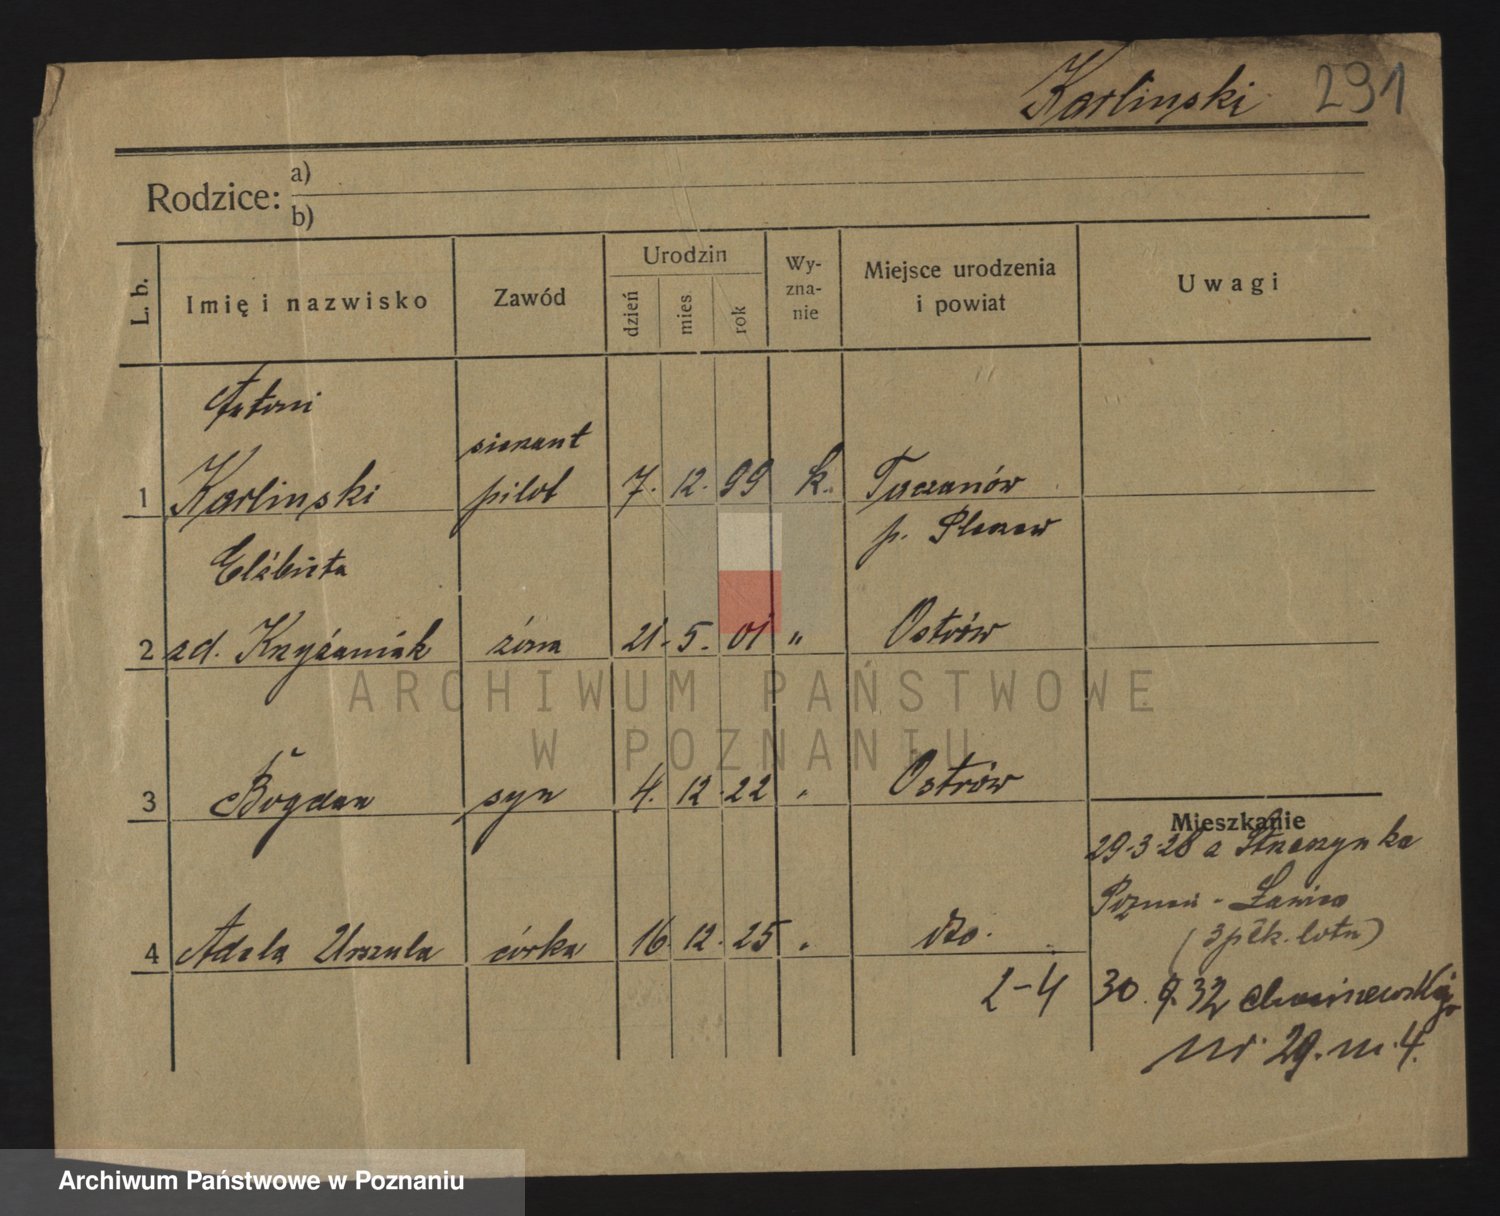 Karlinski 291
Rodzice: a)
b)
L. b. Imię i nazwisko Zawód Urodzin dzień mies rok Wy-zna-nie Miejsce urodzenia i powiat Uwagi
Antoni
sierżant
1 Karlinski pilot 7. 12. 99 k. Taczanów
p. Pleszew
Elżbieta
2 zd. Krzyżaniak żona 21. 5. 01 " Ostrów
3 Bogdan syn 4. 12. 22 " Ostrów
Mieszkanie
29.3.28 z Strzeszynka
Poznań - Ławica
(3 płk. lotn)
4 Adela Urszula córka 16. 12. 25 " dto.
2-4 30. 9. 32
nr. 29. m. 4.
ARCHIWUM PAŃSTWOWE
W POZNANIU
Archiwum Państwowe w Poznaniu